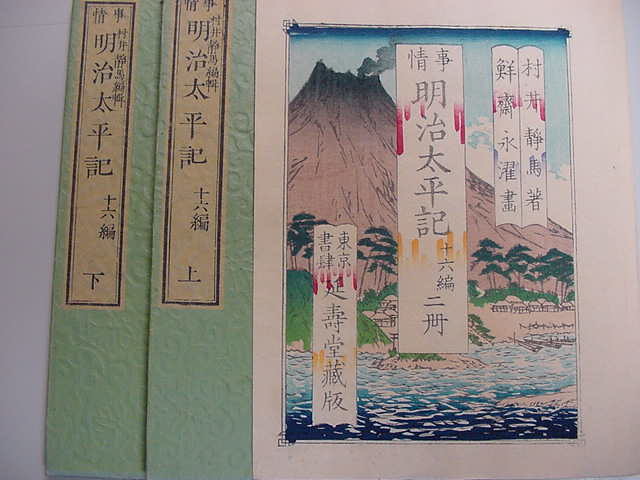 村井靜馬著
鮮齋永濯畫
事情
明治太平記
十六編二册
東京書肆
延壽堂藏版
事情
村井靜馬編輯
明治太平記
十六編
上
事情
村井靜馬編輯
明治太平記
十六編
下